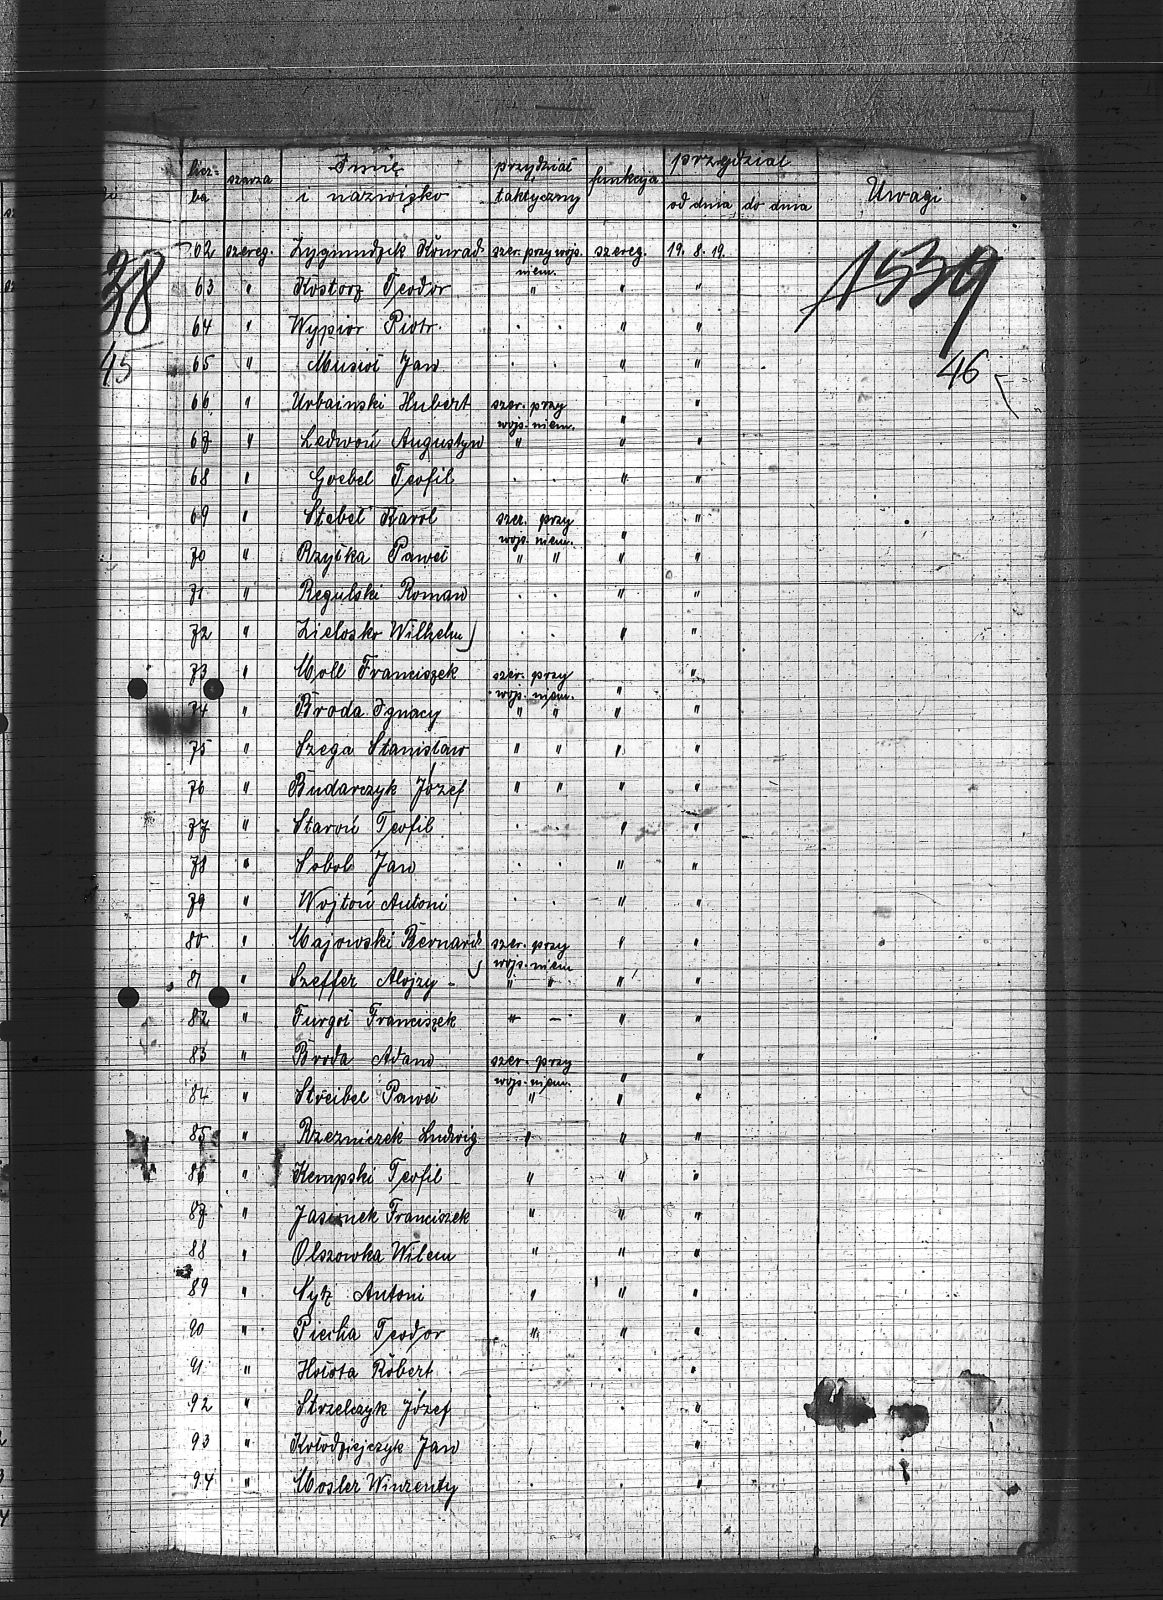 licz- szarża Imię przydział funkcja przydział Uwagi
ba i nazwisko taktyczny od dnia do dnia
38 1539
45 46
62 szereg. Zygmundzik Konrad szer. przy wojs. niem. szereg. 19. 8. 19.
63 " Kostorz Teodor " " "
64 " Wypior Piotr . . " "
65 " Musioł Jan . . " "
66 " Urbainski Hubert szer. przy wojs. niem. " "
67 " Ledwoń Augustyn " " "
68 " Goebel Teofil . . " "
69 " Stebel Karol szer. przy wojs. niem. " "
70 " Rzyłka Paweł " " " "
71 " Regulski Roman . . " "
72 " Zielosko Wilhelm . . " "
73 " Moll Franciszek szer. przy wojs. niem. " "
74 " Broda Ignacy " " " "
75 " Szega Stanisław " " " "
76 " Budarczyk Józef " " " "
77 " Staroń Teofil . . " "
78 " Sobol Jan . . " "
79 " Wojtoń Antoni . . " "
80 " Majowski Bernard szer. przy wojs. niem " "
81 " Szeffer Alojzy - " " " "
82 " Furgoł Franciszek " - " "
83 " Broda Adam szer. przy wojs. niem. " "
84 " Streibel Paweł " " "
85 " Rzezniczek Ludwig " " "
86 " Kempski Teofil " " "
87 " Franciszek " " "
88 " Olszowka Wilem " " "
89 " Antoni " " "
90 " Piecha Teodor " " "
91 " Hołota Robert . . "
92 " Strzelczyk Józef . . "
93 " Kołodziejczyk Jan . . "
94 " Mosler Winzenty . . "